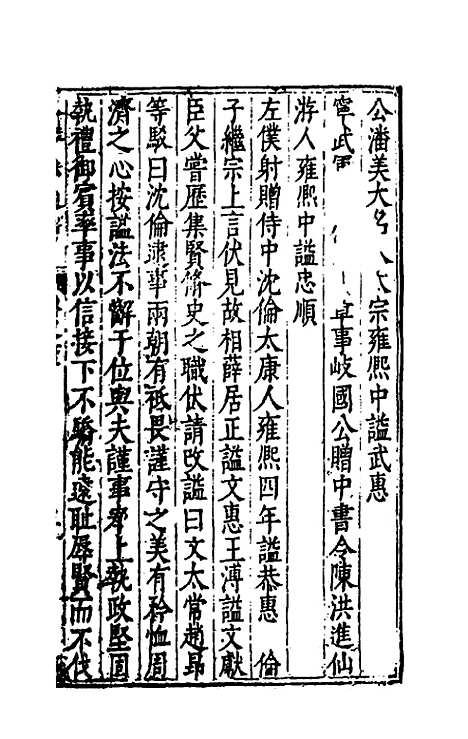 公潘美大名人太宗雍熙中諡武惠
寧武軍 事岐國公贈中書令陳洪進仙
游人雍熙中諡忠順
左僕射贈侍中沈倫太康人雍熙四年諡恭惠 倫
子繼宗上言伏見故相薛居正諡文惠王溥諡文獻
臣父嘗歷集賢脩史之職伏請改諡曰文太常趙昂
等駁曰沈倫逮事兩朝有祗畏謹守之美有矜恤周
濟之心按諡法不懈于位與夫謹事奉上執政堅固
執禮御賓率事以信接下不驕能遠恥辱賢而不伐